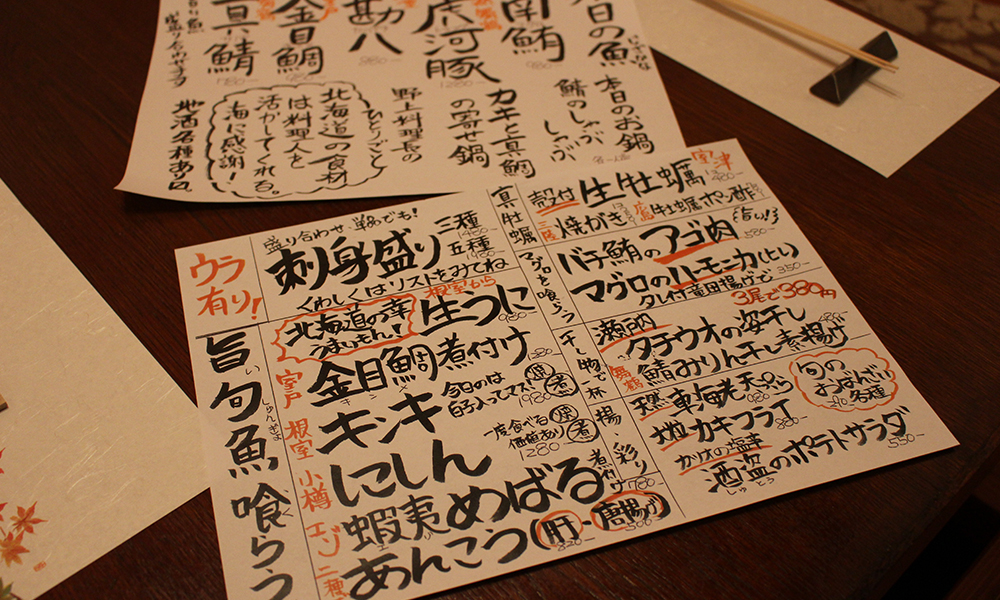 本日の魚
南鮪
虎河豚
勘八
金目鯛
真鯖
本日のお鍋
鯖のしゃぶしゃぶ
カキと真鯛の寄せ鍋
野上料理長のひとりごと
北海道の食材
は料理人を
活かしてくれる。
海に感謝！
地酒各種あり〼。
ウラ有り！
盛り合わせ・単品でも！
刺身盛り
三種 1480-
五種 1980-
くわしくはリストをみてね
旨い旬魚喰らう
北海道の幸
うまいもん！
根室から
生うに
室戸
金目鯛煮付け 1280-
根室
キンキ
今日のは
白子入ってマス！
焼 煮
1980-
小樽
にしん
一度食べる
価値あり
焼 煮
1280-
エゾ
蝦夷めばる
煮付け 780-
二種
あんこう（肝・唐揚げ）
真牡蠣
室津
殻付 生牡蠣
三陸 焼がき
広島 牡蠣ポン酢
マグロを喰らう
バチ鮪のアゴ肉 580-
（旨い！）
マグロのハーモニカ（ヒレ）
タレ付竜田揚げで 350-
干し物で一杯
3尾で380円
瀬戸内 タチウオの姿干し
舞鶴 鯖みりん干し素揚げ
揚
天然 車海老天ぷら 980-
大粒 カキフライ 880-
旬の
おばんざい
各種
彩り
カツオの塩辛
酒盗のポテトサラダ 550-
しゅとう